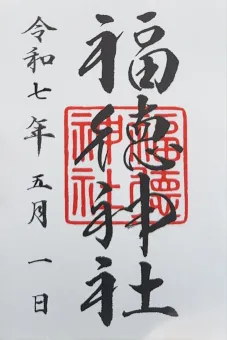 福徳神社
令和七年五月一日
福徳
神社